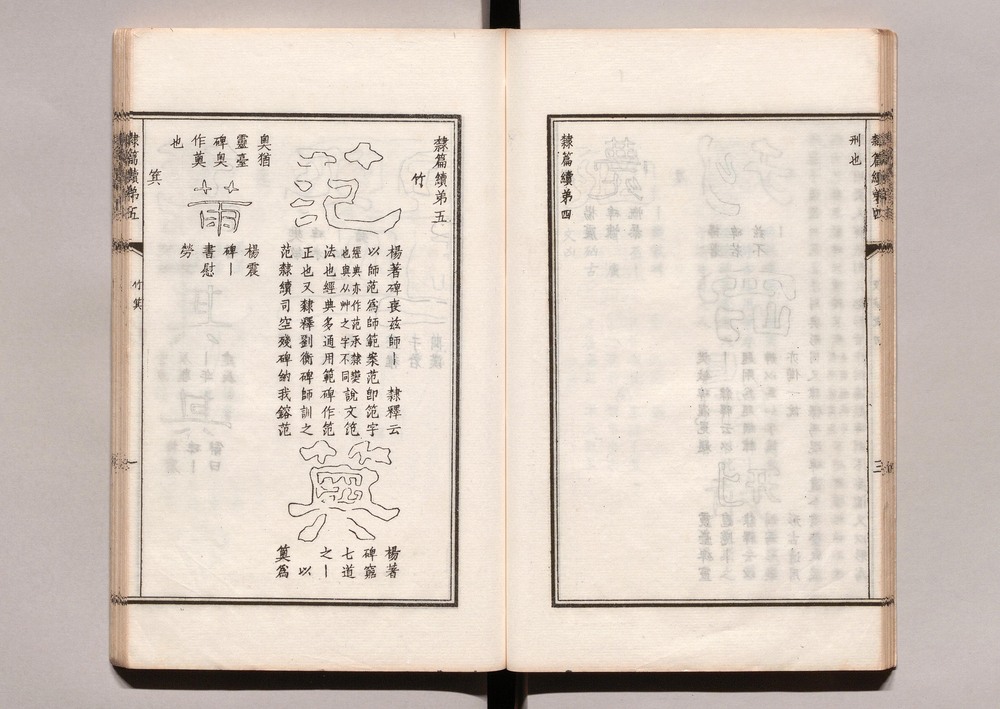 刑也
隸篇續第四
隸篇續第四
三
隸篇續第五
竹
范
楊著碑喪兹師丨　隸釋云
以師范爲師範案范卽笵字
經典亦作范承隸變說文笵
也與从艸之字不同
法也經典多通用範碑作范
正也又隸釋劉衡碑師訓之
范隸續司空殘碑的我鎔范
薁
楊著
碑窮
七道
之丨
以
薁爲
奥猶
靈臺
碑奥
作薁
也
楊震
碑丨
書慰
勞
箕
隸篇續第五
竹箕